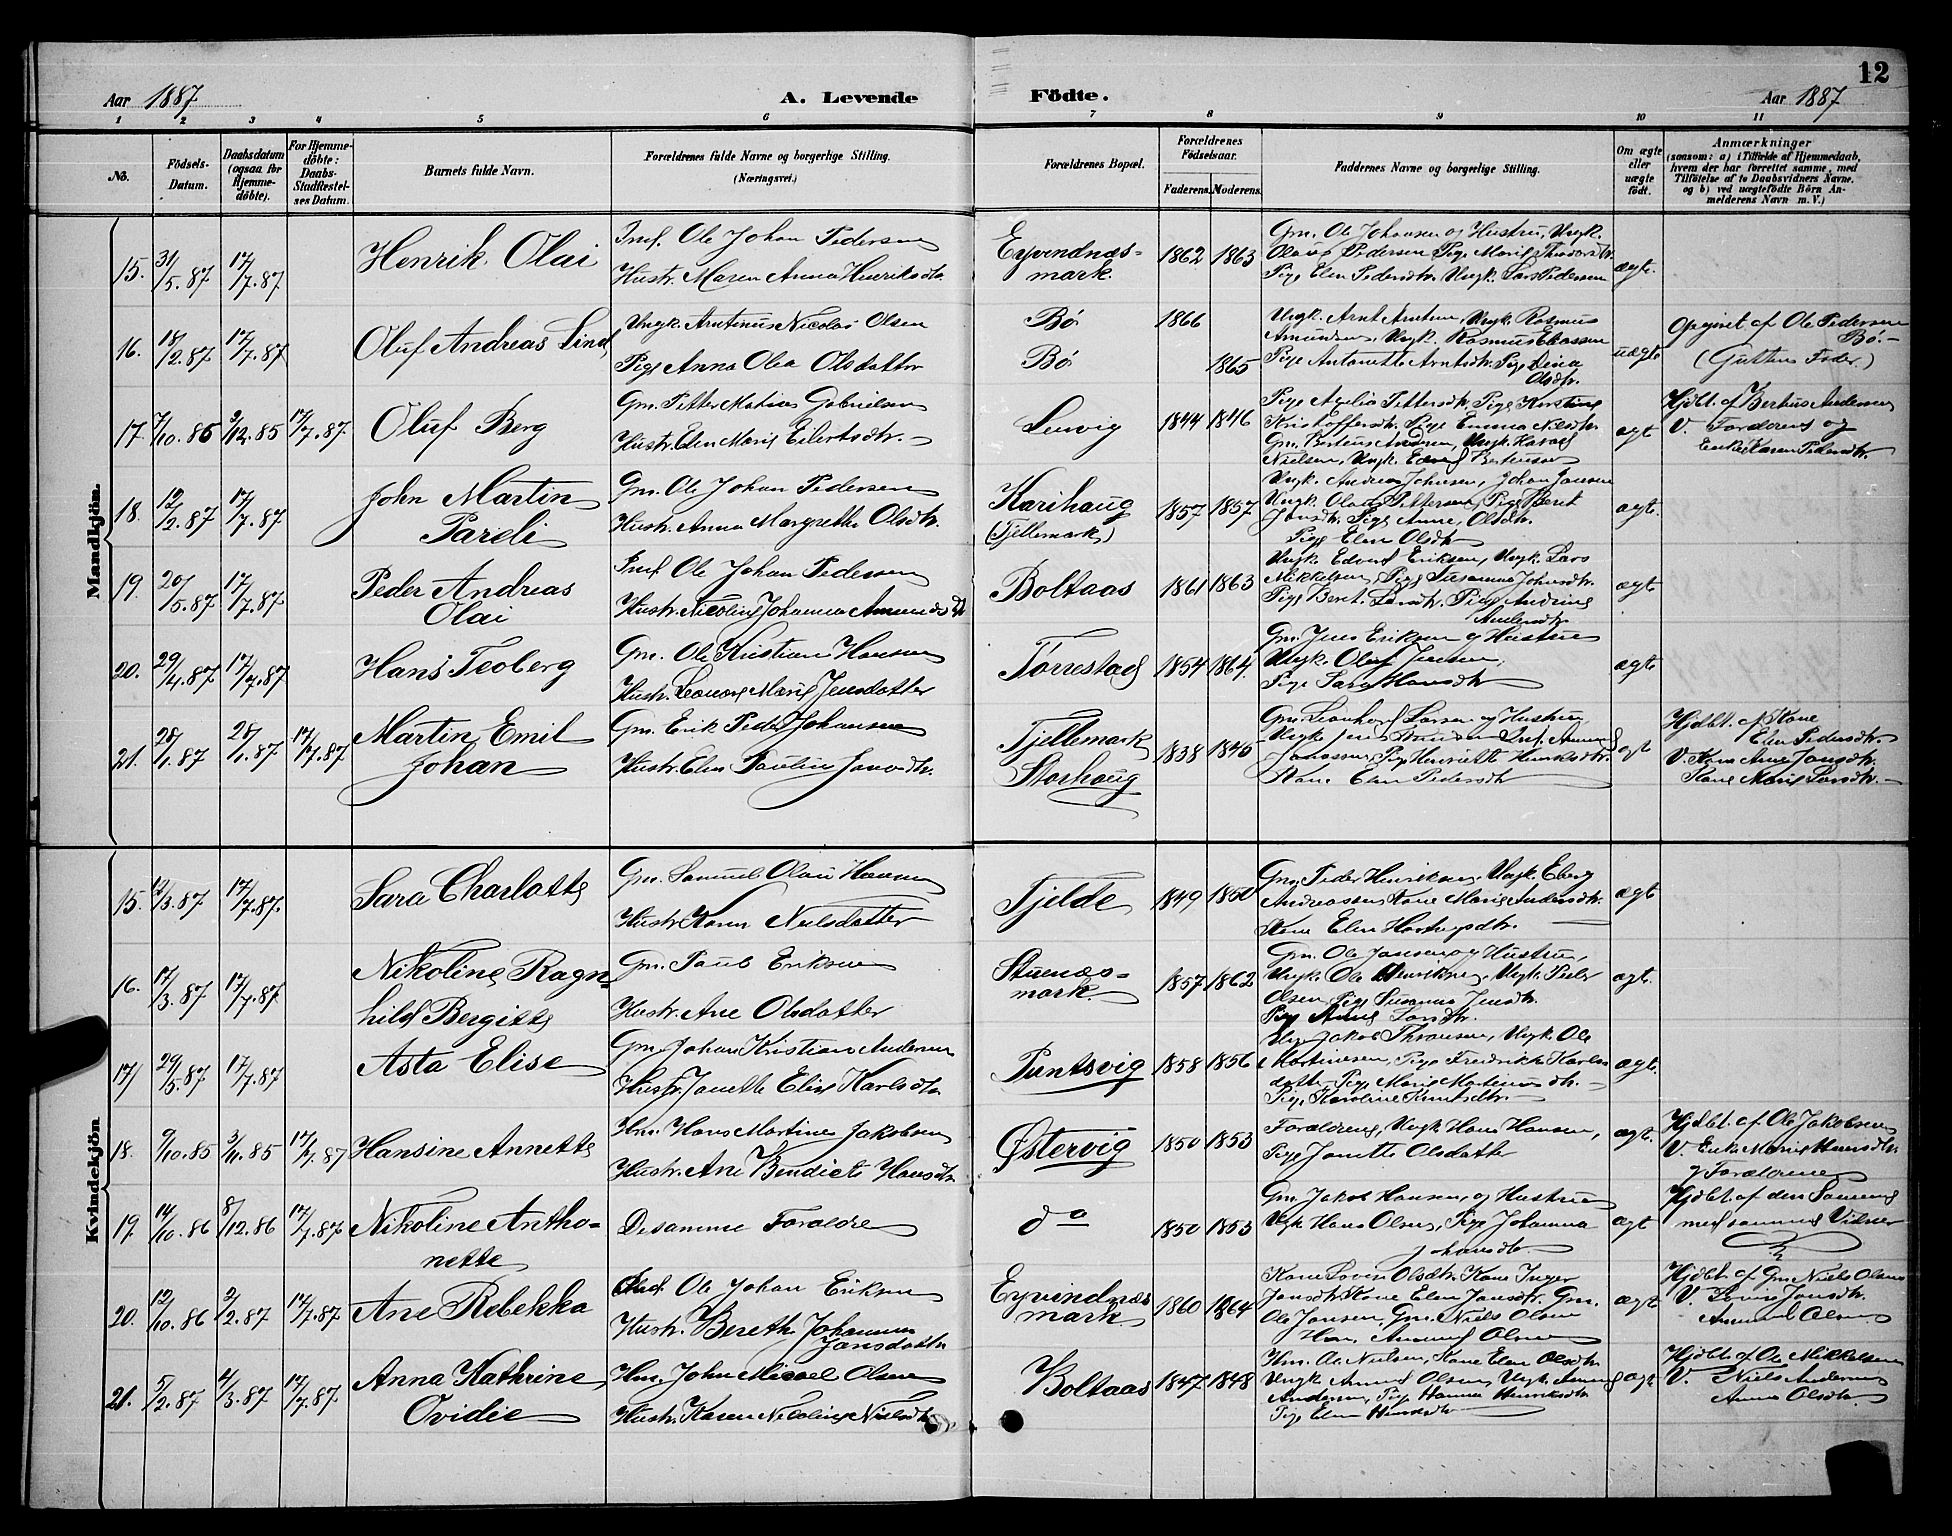 12
Aar 1887
A. Levende Födte.
Aar 1887
1 2 3 4 5 6 7 8 9 10 11
No.
Födsels-Datum.
Daabsdatum (ogsaa for Hjemmedöbte).
For Hjemmedöbte: Daabs-Stadfæstelses Datum.
Barnets fulde Navn.
Forældrenes fulde Navne og borgerlige Stilling. (Næringsvei.)
Forældrenes Bopæl.
Forældrenes Födselsaar.
Faderens. Moderens.
Faddernes Navne og borgerlige Stilling.
Om ægte eller uægte födt.
Anmærkninger
(saasom: a) i Tilfælde af Hjemmedaab, hvem der har forrettet samme, med Tilföielse af to Daabsvidners Navne. og b) ved uægtefödte Börn Anmelderens Navn m. V.)
Mandkjön.
15. 31/5.87 17/7.87 Henrik Olai
Ole Johan Pedersen
Hustr. Maren Anna Henriksdtr.
Eyvendnæs-
mark.
1862 1863
Gm. Ole Johansen og Hustru, Ungk.
Olaus Pedersen Pige Marie
Pige Elen Pedersdtr. Ungk. Lars Pedersen
ægt.
16. 18/2.87 17/7.87 Oluf Andreas Lind
Ungk. Arntinus Nicolai Olsen
Pige Anna Olea Olsdatter
Bö 1866
Bö 1865
Ungk. Arnt Arntsen, Ungk. Rasmus
Amundsen, Ungk. Rasmus
Pige Antonette Arntsdtr. Pige Dina
Olsdtr.
uægt.
Opgivet af Ole Pedersen
Bö.-
17. 7/10.85 3/12.85 17/7.87. Oluf Berg
Gm. Petter Matias Gabrielsen
Hustr. Elen Marie Eilertsdtr.
Leivvig
1844 1846
Kristoffersdtr. Pige Emma Nilsdtr.
Gm. Berteus Andersen, Ungk.
Nielsen, Ungk. Edvard Berteussen
ægt
Hjdbt. af Berteus Andersen
V. Forældrene og
Enke Karen Pedersdtr.
18. 12/2.87 17/7.87 John Martin
Pareli
Gm. Ole Johan Pedersen
Hustr. Anna Margrethe Olsdtr.
Karihaug
(Tjellemark)
1857 1857
Ungk. Andreas Johnsen, Johan Jansen
Ungk. Olaus Pettersen, Pige Beret
Jonsdtr. Pige Anne Olsdtr.
Pige Elen Olsdtr.
ægt.
19. 20/5.87 17/7.87 Peder Andreas
Olai
Ole Johan Pedersen
Hustr. Nicoline Johanna Amundsdtr.
Boltaas
1861 1863
Ungk. Edvard Eriksen, Ungk. Lars
Mikkelsen, Pige Susanna Johnsdtr.
Pige Beret Larsdtr. Pige Andrine
Andersdtr.
ægt
20. 29/4.87 17/7.87 Hans Teoberg
Gm. Ole Kristian Hansen
Hustr. Leonore Marie Jensdatter
Torrestad
1854 1864.
Gm. Jens Eriksen og Hustru
Ungk. Oluf Jensen,
Pige Sara Hansdtr.
ægt
21. 28/1.87 28/1.87 17/7.87 Martin Emil
Johan
Gm. Erik Peder Johansen
Hustr. Elen Paulin
Tjellemark
Storhaug
1838 1846
Gm. Leonhard Larsen og Hustru
Pige Henriette Henriksdtr.
Kone Elen Pedersdtr.
ægt
Hjdbt. af Kone
Elen Pedersdtr.
V. Kone Ane Jonsdtr.
Kone Marie Larsdtr.
Kvindekjön
15. 12/3.87 17/7.87. Sara Charlotte
Gm. Samuel Olaus Hansen
Hustr. Karen Nielsdatter
Tjelde
1849 1850
Gm. Peder Henriksen, Ungk. Eberg
Andreassen, Kone Marie Andersdtr.
Kone Elen Hartvigsdtr.
ægt
16. 17/3.87 17/7.87. Nikoline Ragn-
hild Bergitte
Gm. Paul Eriksen
Hustr. Ane Olsdatter
Stuenæs-
mark.
1857 1862
Gm. Ole Jansen og Hustru,
Ungk. Ole Henriksen, Ungk. Peder
Olsen, Pige Susanna Jensdtr.
Pige Anne Larsdtr.
ægt.
17. 29/5.87 17/7.87 Asta Elise
Gm. Johan Kristian Andersen
Hustr. Janette Elise Karlsdtr.
Puntsvig
1858 1856
Jakob Thronsen, Ungk. Ole
Martinesen, Pige Fredrikke Karls-
datter, Pige Marie Martinusdtr.
Pige Karoline Knutsdtr.
ægt.
18. 9/10.85 3/11.85 17/7.87 Hansine Annette
Hm. Hans Martines Jakobsen
Hustr. Ane Bendicte Hansdtr.
Østervig
1850 1853
Forældrene, Ungk. Hans Hansen,
Pige Janette Olsdatter
ægt.
Hjdbt. af Ole Jakobsen
V. Enke Marie Hansdtr.
og Forældrene
19. 14/10.86 8/12.86 17/7.87 Nikoline Antho-
nette
De samme Forældre
do
1850 1853
Gm. Jakob Hansen, og Hustru
Ungk. Hans Olsen, Pige Johanna
Johansdtr.
ægt
Hjdbt. af den Samme
med samme Vidner
20. 12/10.86 2/2.87 17/7.87 Ane Rebekka
Ole Johan Eriksen
Hustr. Bereth Johanna
Jonsdatter
Eyvindnæs
mark.
1860 1864
Kone Lovise Olsdtr. Kone Inger
Jonsdtr. Kone Elen Jonsdtr. Gm.
Ole Jonsen, Gm. Niels Olsen
Amund Olsen
ægt
Hjdbt. af Gm. Niels Olsen
V. Jonsdtr.
Amund Olsen
21. 5/2.87 4/3.87 17/7.87 Anna Kathrine
Ovidie
Hm. John Micael Olsen
Hustr. Karen Nicoline Nielsdtr.
Boltaas
1847 1848
Hm. Ole Nielsen, Kone Elen Olsdtr.
Ungk. Amund Olsen, Ungk.
Andersen, Pige Hanna Henriksdtr.
Pige Elen
ægt
Hjdbt. af Ole Mikkelsen
V. Niels Andersen
Anne Olsdtr.